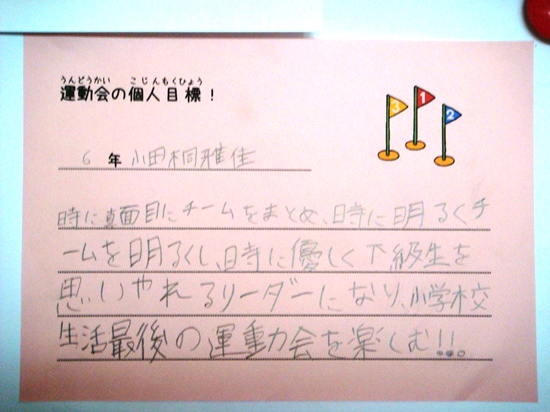 うんどうかい こじんもくひょう
運動会の個人目標！
3 1 2
6 年 小田桐雅佳
時に真面目にチームをまとめ、時に明るくチ
ームを明るくし、時に優しく下級生を
思いやれるリーダーになり、小学校
生活最後の運動会を楽しむ!!